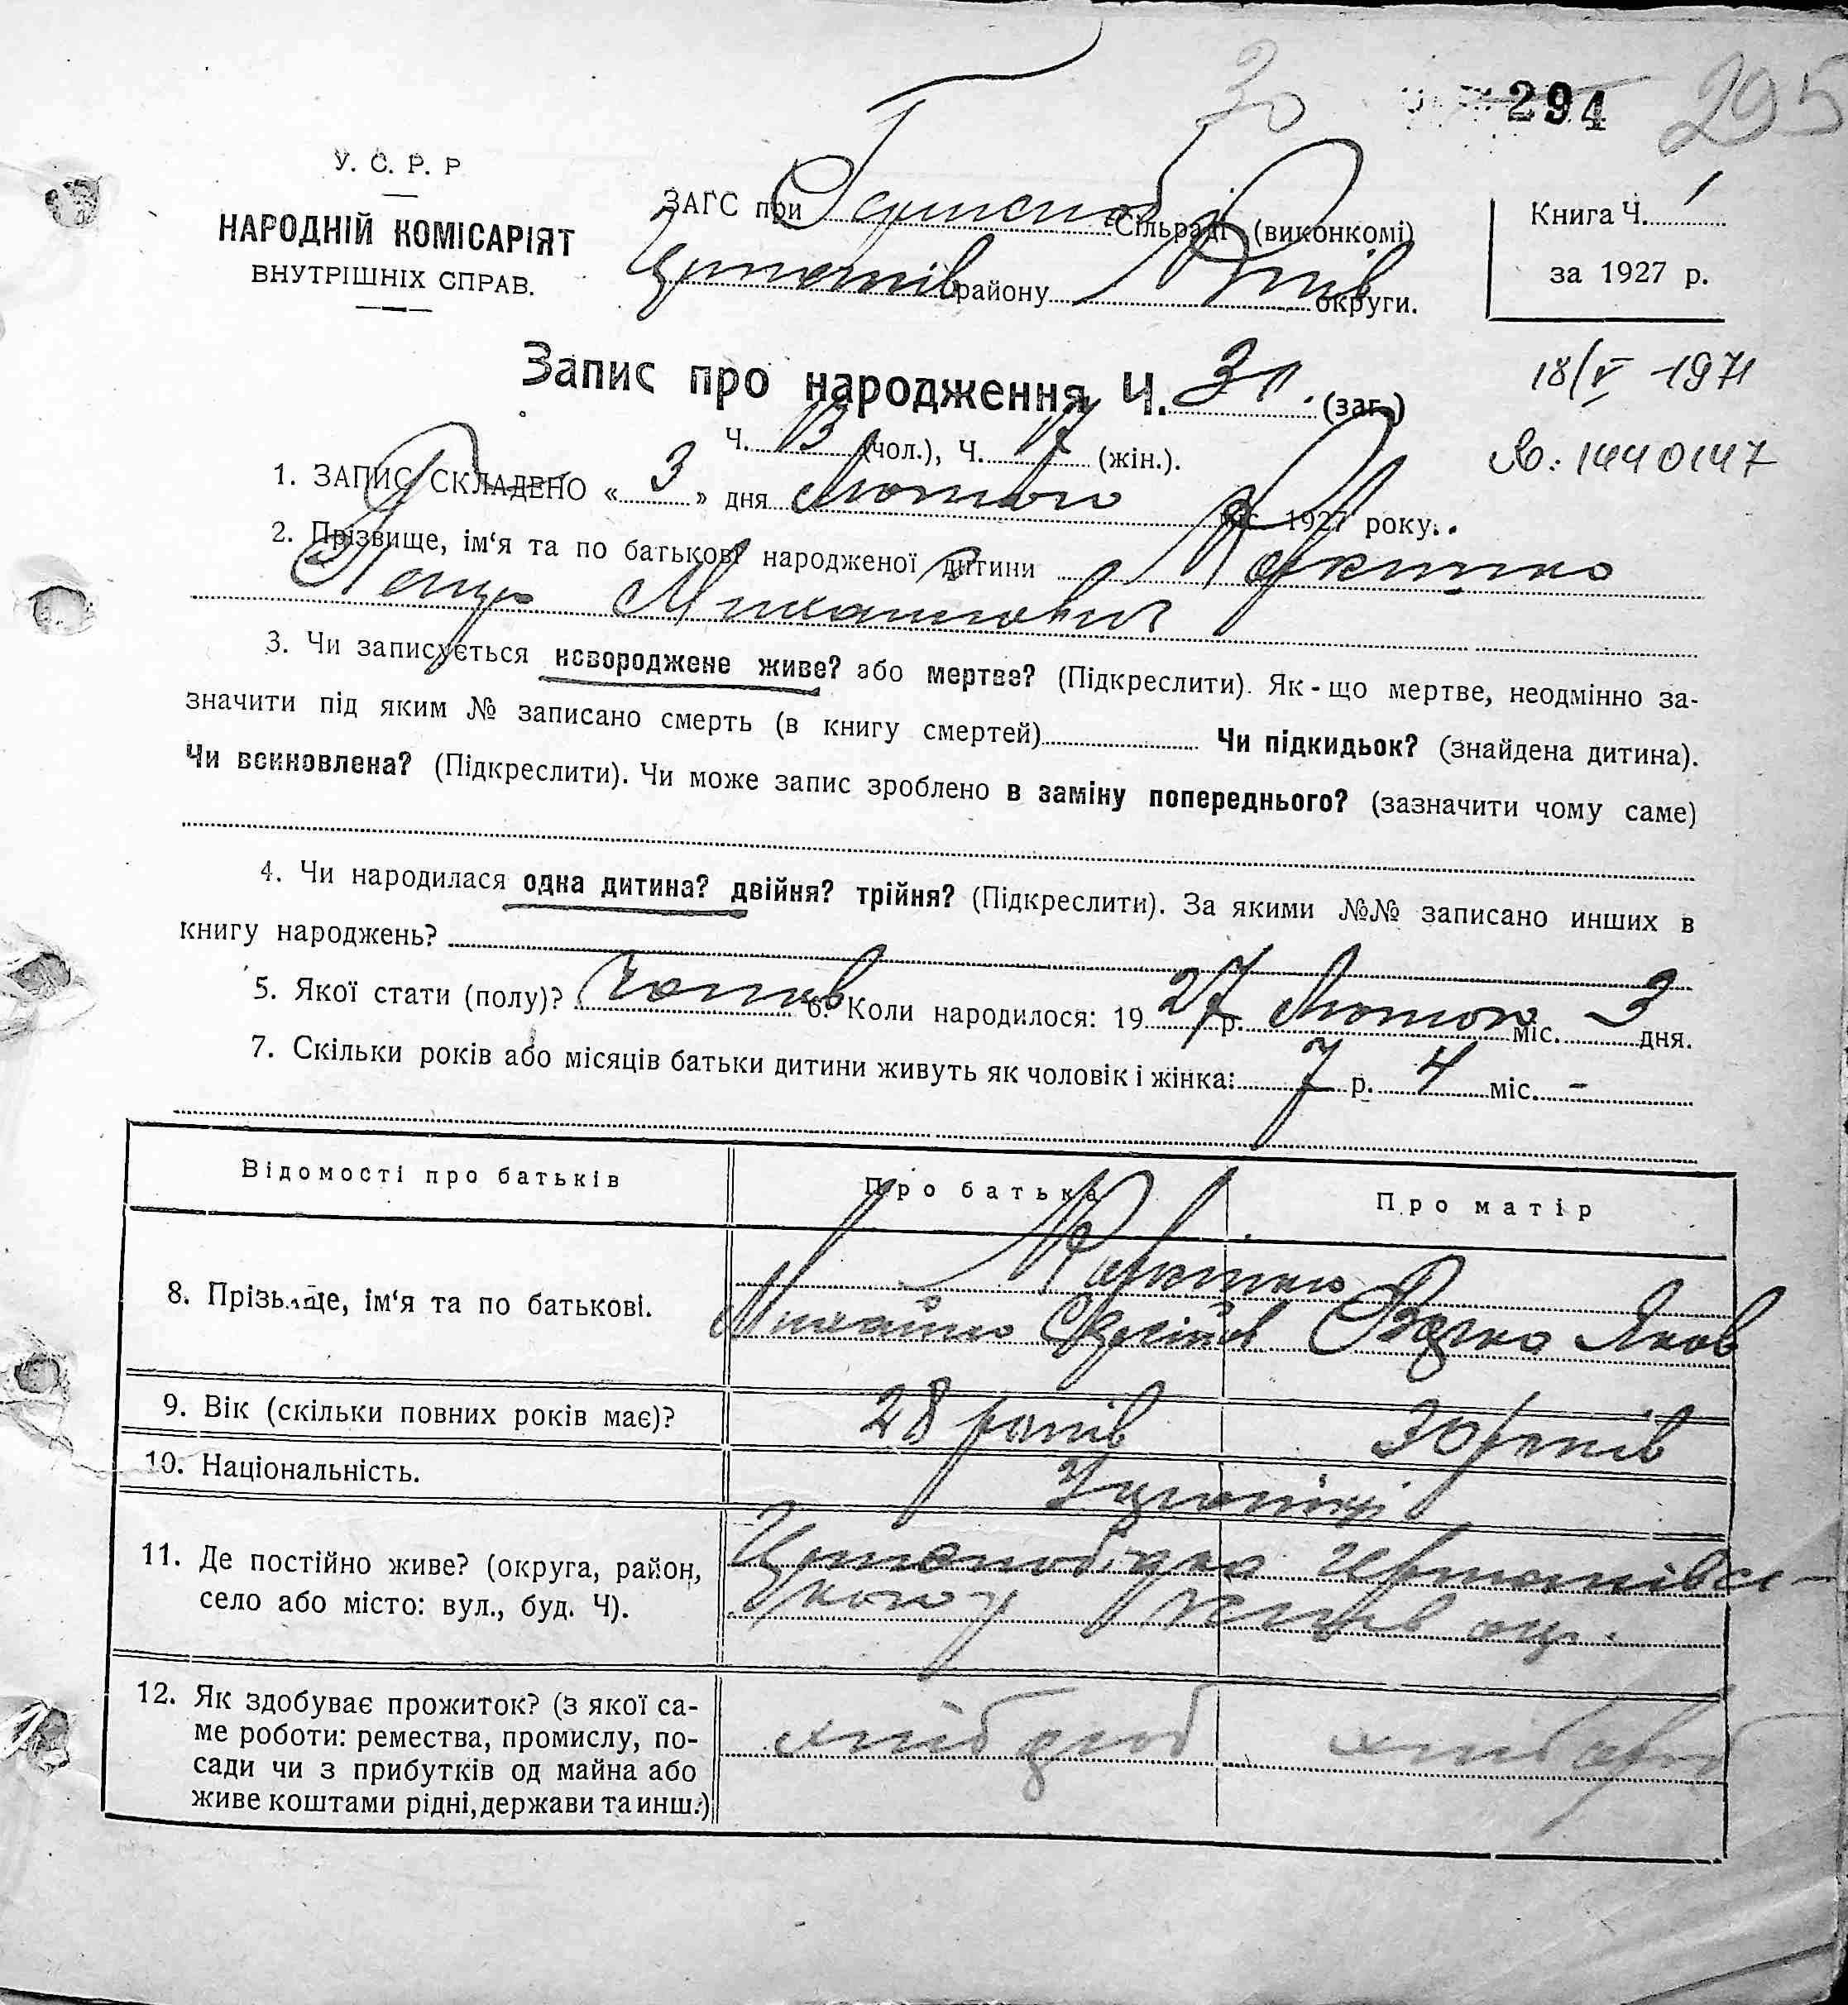 30 294 295
У. С. Р. Р
НАРОДНІЙ КОМІСАРІЯТ
ВНУТРІШНІХ СПРАВ.
ЗАГС при Сільраді (виконкомі)
району округи.
Книга Ч. 1
за 1927 р.
Запис про народження Ч. 31. (заг.)
18/V 1971
Ч. 13 (чол.), Ч. 17 (жін.).
№: 1440147
1. ЗАПИС СКЛАДЕНО « 3 » дня Лютого міс. 1927 року.
2. Прізвище, ім‘я та по батькові народженої дитини
Михайлович
3. Чи записується новороджене живе? або мертве? (Підкреслити). Як-що мертве, неодмінно за-
значити під яким № записано смерть (в книгу смертей) Чи підкидьок? (знайдена дитина).
Чи всиновлена? (Підкреслити). Чи може запис зроблено в заміну попереднього? (зазначити чому саме)
4. Чи народилася одна дитина? двійня? трійня? (Підкреслити). За якими №№ записано инших в
книгу народжень?
5. Якої стати (полу)? чолов 6. Коли народилося: 1927 р. Лютого міс. 3 дня.
7. Скільки років або місяців батьки дитини живуть як чоловік і жінка: 7 р. 4 міс. -
Відомості про батьків Про батька Про матір
8. Прізвище, ім‘я та по батькові.
Михайло Яков
9. Вік (скільки повних років має)? 28 років 30 років
10. Національність. Українці
11. Де постійно живе? (округа, район,
село або місто: вул., буд. Ч).
12. Як здобуває прожиток? (з якої са-
ме роботи: ремества, промислу, по-
сади чи з прибутків од майна або
живе коштами рідні, держави та инш.)
хліб роб хлібороб